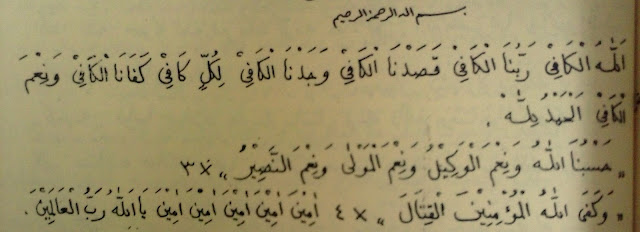 بسم الله الرحمن الرحيم
اَللهُ الْكَافِيْ رَبُّنَا الْكَافِيْ قَصَدْنَا الْكَافِيْ وَجَدْنَا الْكَافِيْ لِكُلٍّ كَافِيْ كَفَانَا الْكَافِيْ وَنِعْمَ
الْكَافِيْ اَلْحَمْدُ لِلّٰهْ .
„ حَسْبُنَا اللهُ وَنِعْمَ الْوَكِيْلُ وَنِعْمَ الْمَوْلٰى وَنِعْمَ النَّصِيْرُ „ × ٣
„ وَكَفَى اللهُ الْمُؤْمِنِيْنَ الْقِتَالَ „ × ٤ اٰمِيْنَ اٰمِيْنَ اٰمِيْنَ اٰمِيْنَ يَا اَللهُ رَبَّ الْعَالَمِيْنَ .